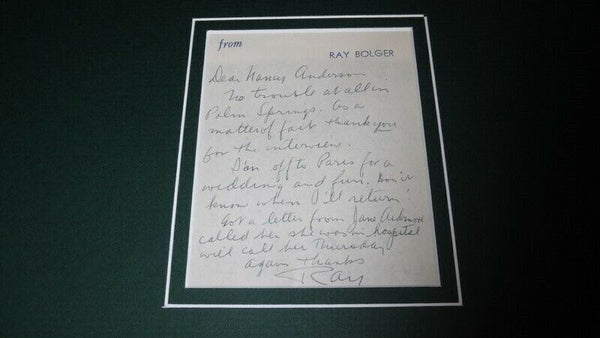 from
RAY BOLGER
Dear Nancy Anderson
No trouble at all in
Palm Springs. As a
matter of fact thank you
for the interview.
I'm off to Paris for a
wedding and fun. Don't
know when I'll return!
Got a letter from Jane Ardmore
called her she was in hospital
will call her Thursday
Again Thanks
Ray